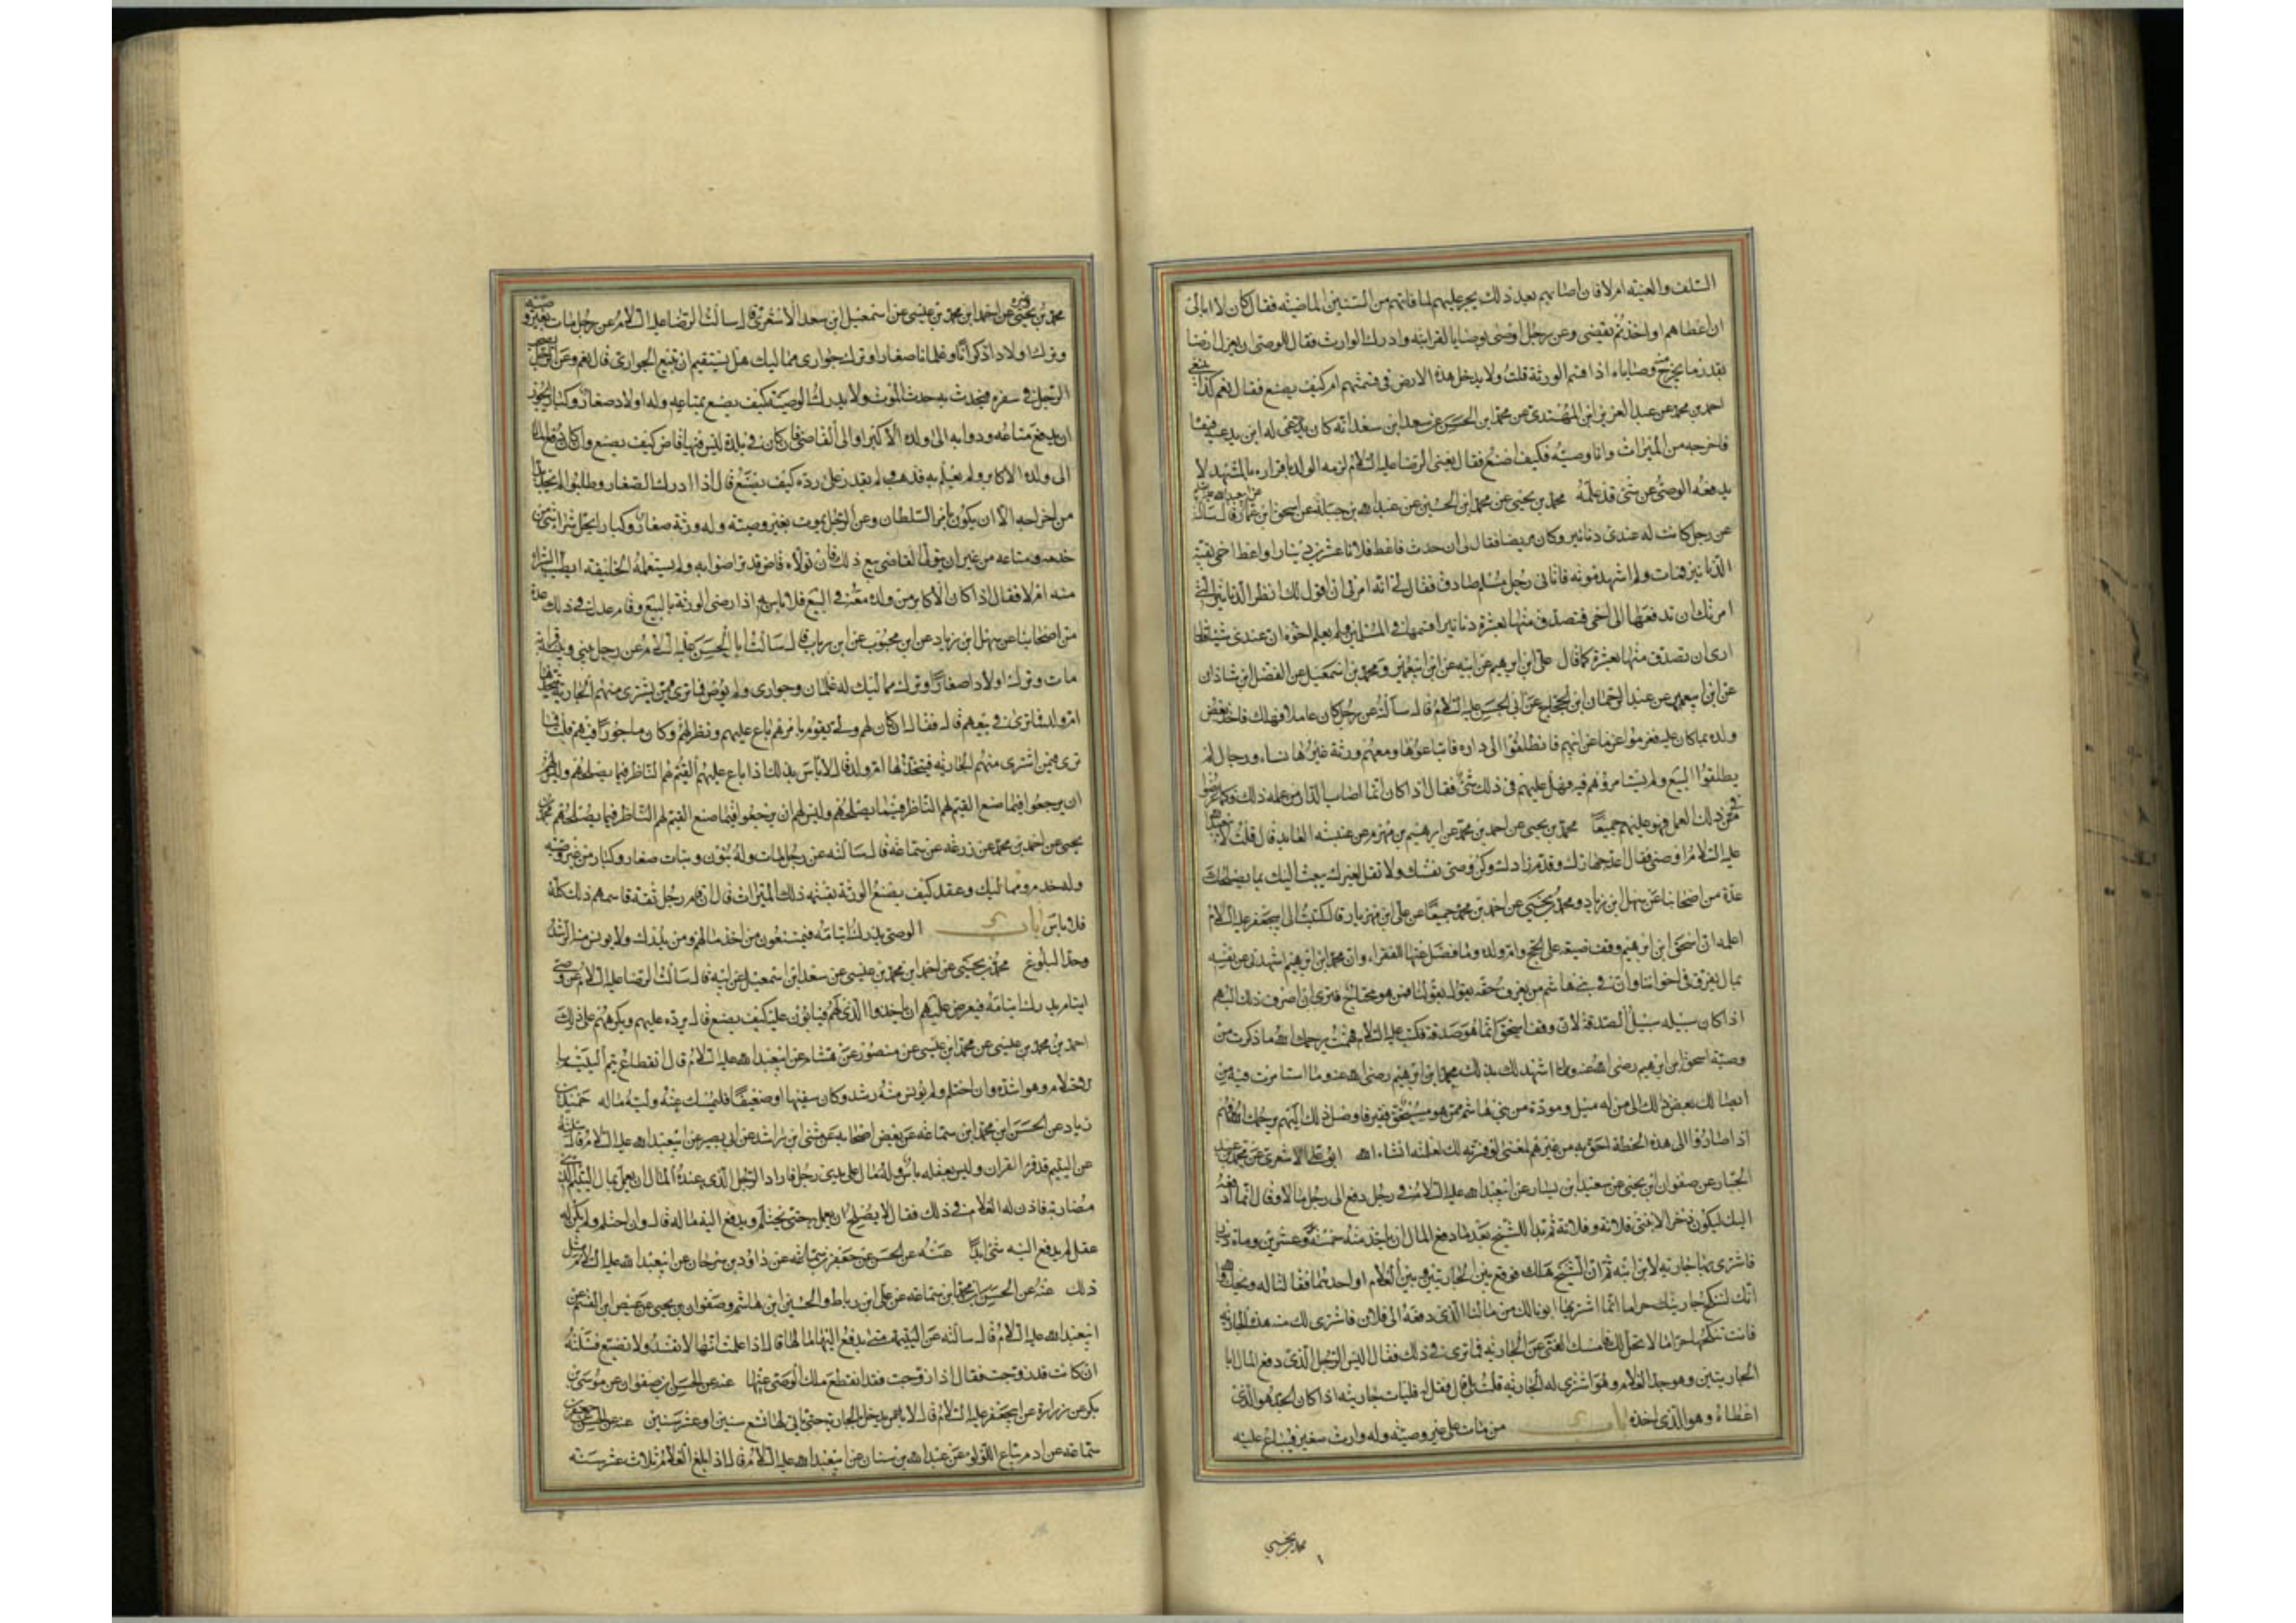 التلف والغيبة ام لا فان اصابهم بعد ذلك يجر عليهم لما فاتهم من السنين الماضية فقال كان لا ابالى
ان اعطاهم او اخذ ثم يقضى وعن رجل اوصى بوصايا لقرابته وادرك الوارث فقال للوصى ان يعزل ارضا
بقدر ما يخرج منه وصاياه اذا قسم الورثة قلت ولا يدخل هذه الارض فى قسمتهم ام كيف يصنع فقال نعم كذا ينبغى
احمد بن محمد عن عبد العزيز ابن المهتدى عن محمد ابن الحسين عن سعد ابن سعد انه كان
فاخرجه من الميراث وانا وصيه فكيف اصنع فقال يعنى الرضا عليه السلام لزمه الولد باقراره بالمشهد لا
يدفعه الوصى عن شئ قد علمه محمد بن يحيى عن محمد ابن الحسين عن عبد الله بن جبلة عن اسحق ابن عمار قال سالته
عن رجل كانت له عندى دنانير وكان مريضا فقال لى ان حدث فاعط فلانا عشرين دينارا واعط اخى بقية
الدنانير فمات ولم اشهد موته فاتانى رجل مسلم صادق فقال لى انه امرنى ان اقول لك انظر الدنانير التى
امرتك ان تدفعها الى اخى فتصدق منها بعشرة دنانير اقسمها فى المسلمين ولم يعلم اخوه ان عندى شيئا فقال
ارى ان تصدق منها بعشرة كما قال على ابن ابرهيم عن ابيه عن ابن ابيعمير ومحمد بن اسمعيل عن الفضل ابن شاذان
عن ابن ابيعمير عن عبد الرحمان ابن الحجاج عن ابى الحسن عليه السلام قال سالته عن رجل كان عاملا فهلك فاخذ بعض
ولده بما كان عليه فغرموا غرما عن ابيهم فانطلقوا الى داره فابتاعوها ومعهم ورثة غيرها نساء ورجال لم
يطلقوا البيع ولم يستامروهم فيه فهل عليهم فى ذلك شئ فقال اذا كان انما اصاب الدار من عمله ذلك وكله غرموا
فى ذلك العمل فهو عليهم جميعا محمد بن يحيى عن احمد بن محمد عن ابرهيم بن مهزم عن عنبسة العابد قال قلت لابيعبد الله
عليه السلام اوصنى فقال اعد جهازك وقدم زادك وكن وصى نفسك ولا تقل لغيرك يبعث اليك بما يصلحك
عدة من اصحابنا عن سهل ابن زياد ومحمد بن يحيى عن احمد بن محمد جميعا عن على ابن مهزيار قال كتبت الى ابيجعفر عليه السلام
اعلمه ان اسحق ابن ابرهيم وقف ضيعة على الحج وام ولده وما فضل عنها للفقراء وان محمد ابن ابرهيم اشهدنى عن نفسه
بمال يفرق فى اخواننا وان فى بنى هاشم من يعرف حقه يقول بقولنا ممن هو محتاج فترى ان اصرف ذلك اليهم
اذا كان سبيله سبيل الصدقة لان وقف اسحق انما هو صدقة فكتب عليه السلام فهمت يرحمك الله ما ذكرت من
وصية اسحق ابن ابرهيم رضى الله عنه وما اشهد لك بذلك محمد ابن ابرهيم رضى الله عنه وما استامرت فيه من
ايصالك بعض ذلك الى من له ميل ومودة من بنى هاشم ممن هو مستحق فقير فاوصل ذلك اليهم يرحمك الله فهم
اذا صاروا الى هذه الخطة احق به من غيرهم لمعنى لو فسرته لك لعلمته انشاء الله ابو على الاشعرى عن محمد بن عبد
الجبار عن صفوان ابن يحيى عن سعيد ابن يسار عن ابيعبد الله عليه السلام فى رجل دفع الى رجل مالا وقال انما ادفعه
اليك ليكون ذخرا لابنتى فلانة وفلانة ثم بدا للشيخ بعد ما دفع المال ان ياخذ منه خمسة وعشرين ومأة دينار
فاشترى بها جارية لابن ابنه ثم ان الشيخ هلك فوقع بين الجاريتين وبين الغلام او احديهما فقالتا له ويحك والله
انك لتنكح جاريتك حراما انما اشتريها ابونا لك من مالنا الذى دفعه الى فلان فاشترى لك منه هذه الجارية
فانت تنكحها حراما لا تحل لك فامسك الفتى عن الجارية فما ترى فى ذلك فقال اليس الرجل الذى دفع المال ابا
الجاريتين وهو جد الغلام وهو اشترى له الجارية قلت بلى قال فقل له فليات جاريته اذا كان الجد هو الذى
اعطاه وهو الذى اخذه باب من مات على غير وصية وله وارث صغير فيباع عليه
محمد بن يحيى
محمد بن يحيى وغيره عن احمد ابن محمد بن عيسى عن اسمعيل ابن سعد الاشعرى قال سالت الرضا عليه السلام عن رجل مات بغير وصية
وترك اولادا ذكرانا وغلمانا صغارا وترك جوارى مماليك هل يستقيم ان تبيع الجوارى قال نعم وعن الرجل يصحب
الرجل فى سفره فيحدث به حدث الموت ولا يدرك الوصية كيف يصنع بمتاعه وله اولاد صغار وكبار ايجوز
ان يدفع متاعه ودوابه الى ولده الاكبر او الى القاضى فان كان فى بلدة ليس فيها قاض كيف يصنع وان كان دفع المال
الى ولده الاكابر ولم يعلم به فذهب ولم يقدر على رده كيف يصنع قال اذا ادرك الصغار وطلبوا لم يجد بدا
من اخراجه الا ان يكون بامر السلطان وعن الرجل يموت بغير وصية وله ورثة صغار وكبار ايحل شراء شئ من
خدمه ومتاعه من غير ان يتولى القاضى بيع ذلك فان تولاه قاض قد تراضوا به ولم يستعمله الخليفة ايطيب الشراء
منه ام لا فقال اذا كان الاكابر من ولده معه فى البيع فلا باس به اذا رضى الورثة بالبيع وقام عدل فى ذلك عدة
من اصحابنا عن سهل ابن زياد عن ابن محبوب عن ابن رياب قال سالت ابا الحسن عليه السلام عن رجل بينى وبينه قرابة
مات وترك اولادا صغارا وترك مماليك له غلمان وجوارى ولم يوص فما ترى فيمن يشترى منهم الجارية يتخذها
ام ولد فما ترى فى بيعهم قال فقال ان كان لهم ولى يقوم بامرهم باع عليهم ونظر لهم وكان ماجورا فيهم قلت فما
ترى فيمن اشترى منهم الجارية فيتخذها ام ولد قال لا باس بذلك اذا باع عليهم القيم لهم الناظر فيما يصلحهم وليس لهم
ان يرجعوا فيما صنع القيم لهم الناظر فيما يصلحهم وليس لهم ان يرجعوا فيما صنع القيم لهم الناظر فيما يصلحهم محمد بن
يحيى عن احمد بن محمد عن زرعة عن سماعة قال سالته عن رجل مات وله بنون وبنات صغار وكبار من غير وصية
وله خدم ومماليك وعقد كيف يصنع الورثة بقسمة ذلك الميراث قال ان قام رجل ثقة قاسمهم ذلك كله
فلا باس باب الوصى يدرك ايتامه فيمتنعون من اخذ مالهم ومن يدرك ولا يونس منه الرشد
وحد البلوغ محمد بن يحيى عن احمد ابن محمد بن عيسى عن سعد ابن اسمعيل عن ابيه قال سالت الرضا عليه السلام عن وصى
ايتام يدرك ايتامه فيعرض عليهم ان ياخذوا الذى لهم فيابون عليه كيف يصنع قال يرده عليهم ويكرههم على ذلك
احمد بن محمد بن عيسى عن محمد ابن عيسى عن منصور عن هشام عن ابيعبد الله عليه السلام قال انقطاع يتم اليتيم
الاحتلام وهو اشده وان احتلم ولم يونس منه رشد وكان سفيها او ضعيفا فليمسك عنه وليه ماله حميد بن
زياد عن الحسن ابن محمد ابن سماعة عن بعض اصحابه عن مثنى ابن راشد عن ابى بصير عن ابيعبد الله عليه السلام قال سالته
عن اليتيم قد قرا القران وليس بعقله باس وله مال على يدى رجل فاراد الرجل الذى عنده المال ان يعمل بمال اليتيم
مضاربة فاذن له الغلام فى ذلك فقال لا يصلح ان يعمل حتى يحتلم ويدفع اليه ماله قال وان احتلم ولم يكن له
عقل لم يدفع اليه شئ ابدا عنه عن الحسن عن جعفر بن سماعة عن داود بن سرحان عن ابيعبد الله عليه السلام مثل
ذلك عنه عن الحسن ابن محمد ابن سماعة عن على ابن رباط والحسين ابن هاشم وصفوان بن يحيى عن عيص ابن القسم عن
ابيعبد الله عليه السلام قال سالته عن اليتيمة متى يدفع اليها مالها قال اذا علمت انها لا تفسد ولا تضيع فسئلته
ان كانت قد زوجت فقال اذا زوجت فقد انقطع ملك الوصى عنها عنه عن الحسن عن صفوان عن موسى بن
بكر عن زرارة عن ابيجعفر عليه السلام قال لا يدخل بالجارية حتى ياتى لها تسع سنين او عشر سنين عنه عن الحسن عن جعفر بن
سماعة عن ادم بياع اللولو عن عبد الله بن سنان عن ابيعبد الله عليه السلام قال اذا بلغ الغلام ثلاث عشر سنة